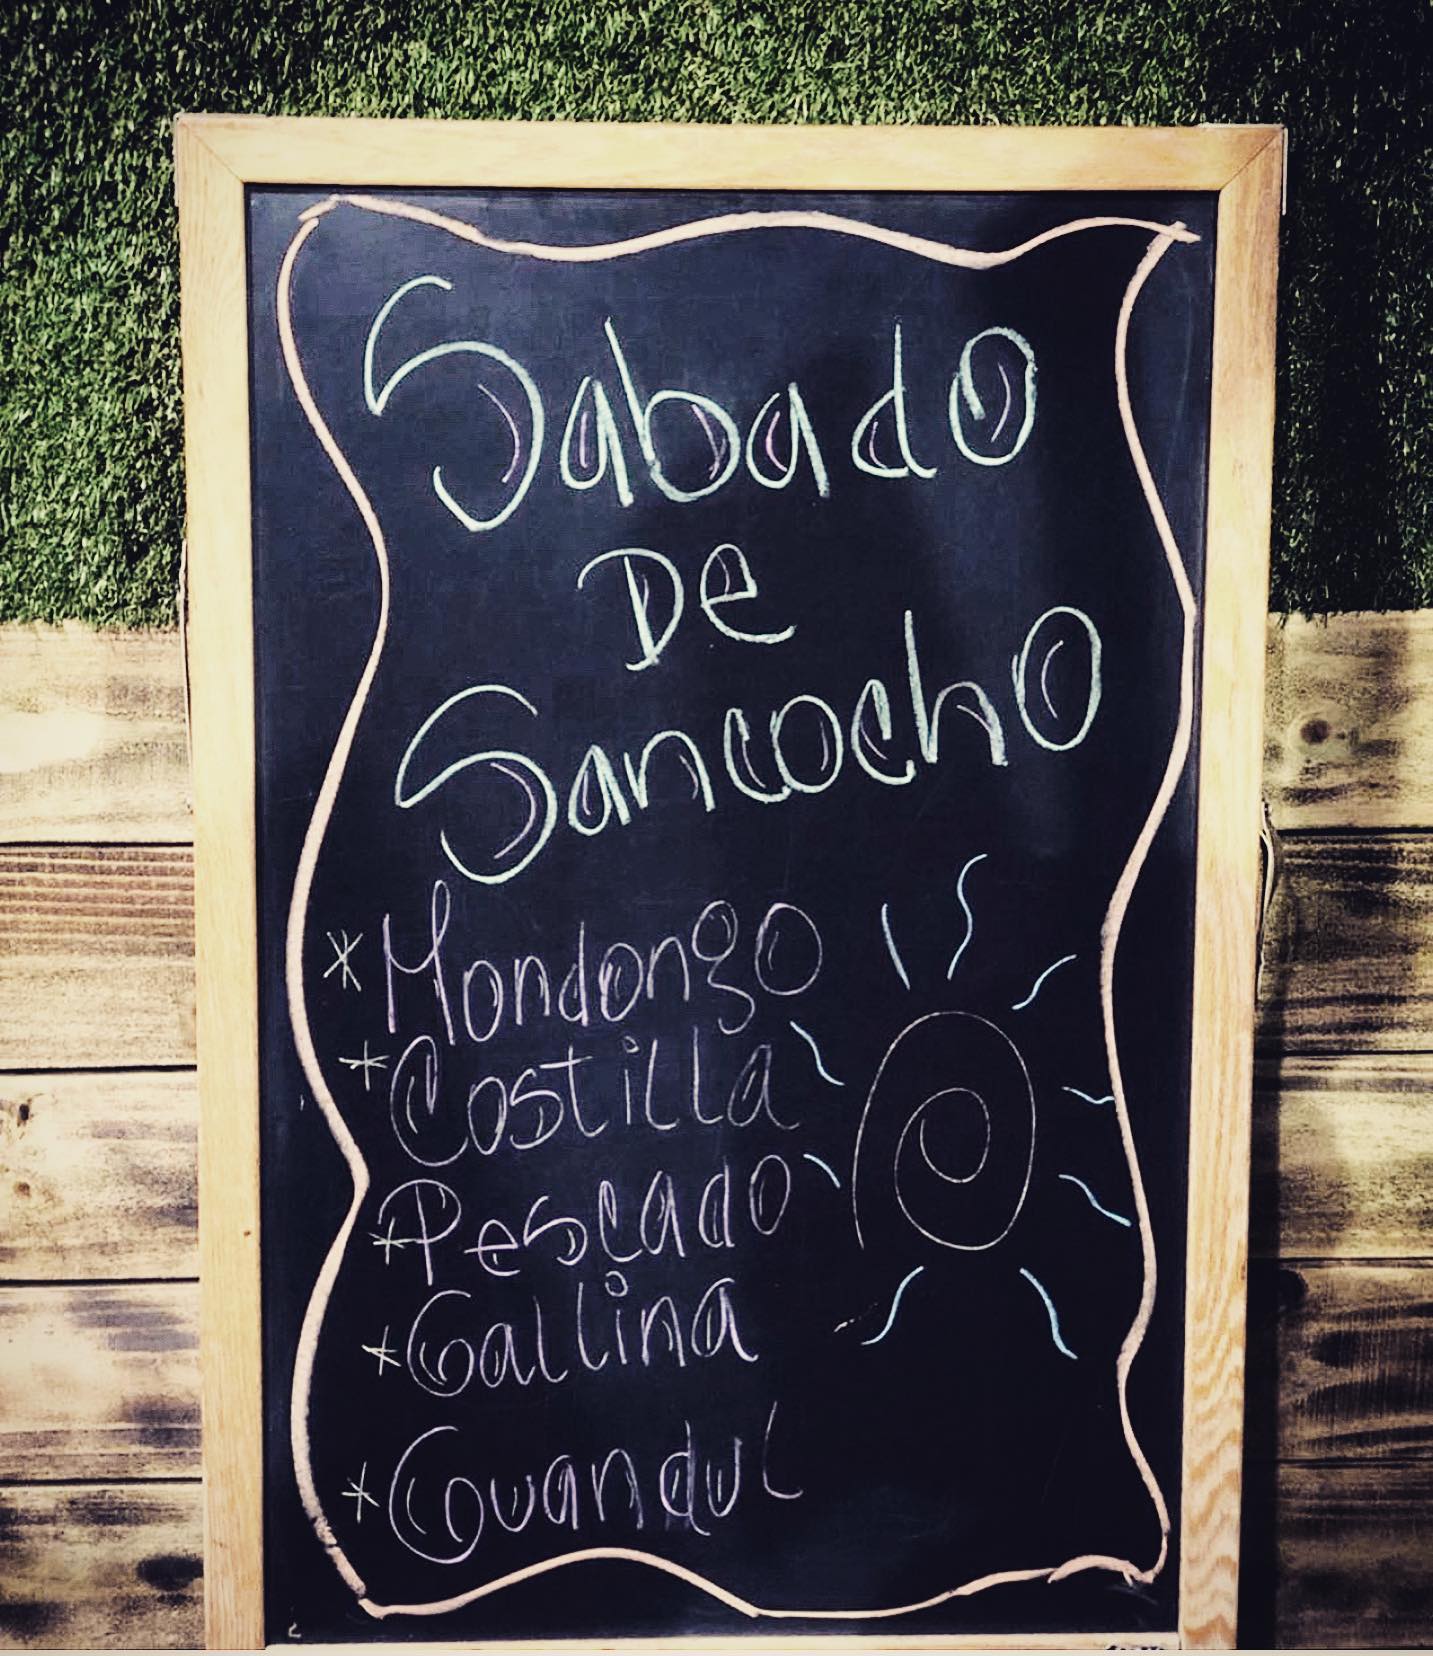 Sabado
De
Sancocho
* Mondongo
* Costilla
* Pescado
* Gallina
* Guandul